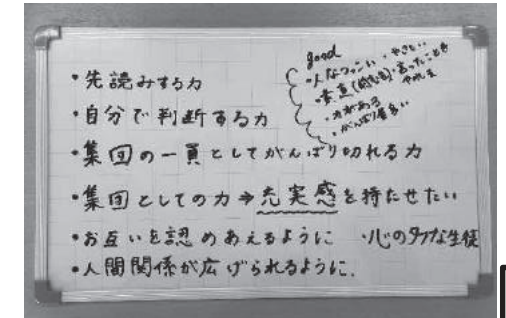 ・先読みする力
・自分で判断する力
・集団の一員としてがんばり切れる力
・集団としての力➔充実感を持たせたい
・お互いを認めあえるように ・心のタフな生徒
・人間関係が広げられるように.
good
・人なつっこい・やさしい
・素直
・力がある
・がんばり屋多い